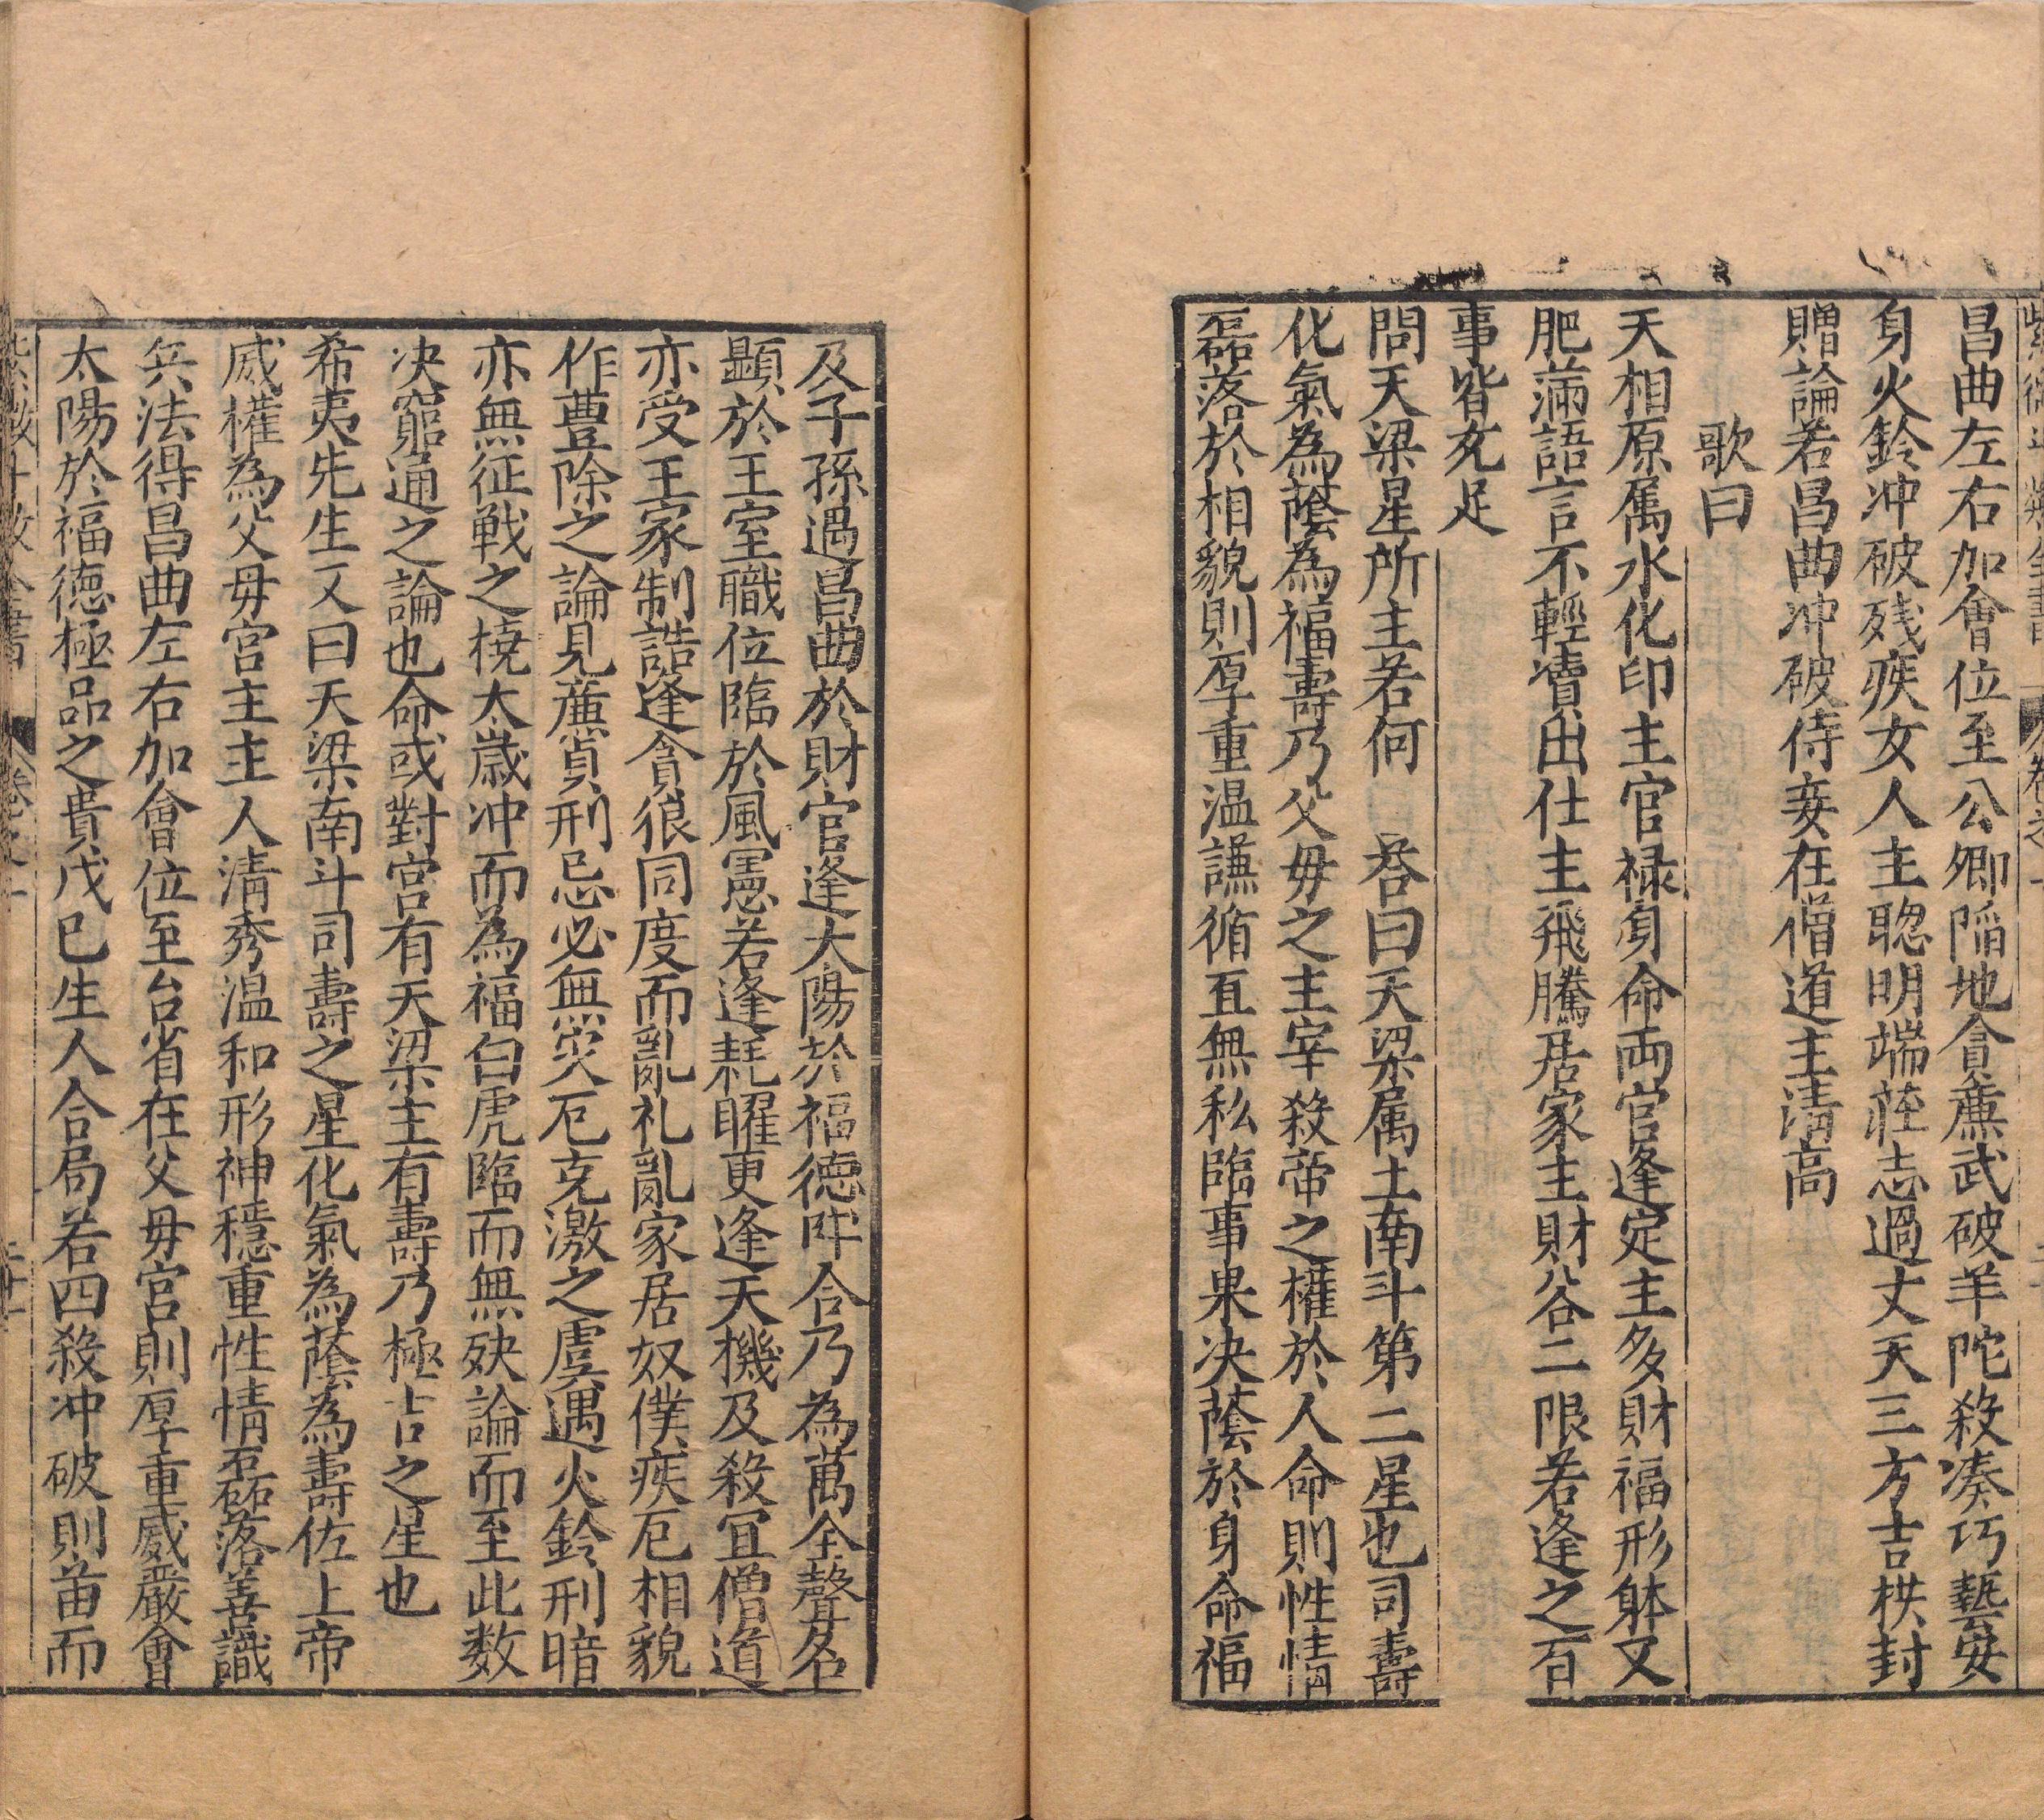 昌曲左右加會位至公卿陷地貪廉武破羊陀殺湊巧藝安
身火鈴冲破残疾女人主聦明端莊志過丈夫三方吉拱封
贈論若昌曲冲破侍妾在僧道主清高
歌曰
天相原属水化印主官禄身命両宫逢定主多財福形躰又
肥滿語言不輕瀆出仕主飛騰居家主財谷二限若逢之百
事皆充足
問天梁星所主若何 答曰天梁属土南斗第二星也司壽
化氣為蔭為福壽乃父母之主宰殺帝之權於人命則性情
磊落於相貌則厚重温謙循直無私臨事果决蔭於身命福
及子孫遇昌曲於財官逢太陽於福德三合乃為萬全聲名
顯於王室職位臨於風憲若逢耗曜更逢天機及殺宜僧道
亦受王家制誥逢貪狼同度而亂礼亂家居奴僕疾厄相貌
作豊除之論見廉貞刑忌必無災厄克激之虞遇火鈴刑暗
亦無征戦之橈太歲冲而為福白虎臨而無殃論而至此数
决窮通之論也命或對宫有天梁主有壽乃極吉之星也
希夷先生又曰天梁南斗司壽之星化氣為蔭為壽佐上帝
威權為父母宫主主人清秀温和形神穩重性情磊落善識
兵法得昌曲左右加會位至台省在父母宫則厚重威嚴會
太陽於福德極品之貴戊己生人合局若四殺冲破則苗而